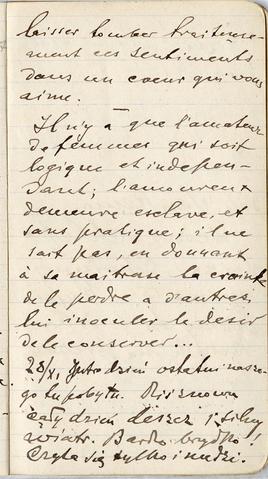 laisser tomber traîtreuse-
ment ces sentiments
dans un coeur qui vous
aime.
Il n'y a que l'amateur
de femmes qui soit
logique et indépen-
dant; l'amoureux
demeure esclave, et
sans pratique; il ne
sait pas, en donnant
à sa maîtresse la crainte
de le perdre a d'autres,
lui inoculer le désir
de le conserver...
28/X. Jutro dzień ostatni nasze-
go tu pobytu. Dziś znowu
cały dzień deszcz i silny
wiatr. Bardzo brzydko!
Czyta się tylko i nudzi.